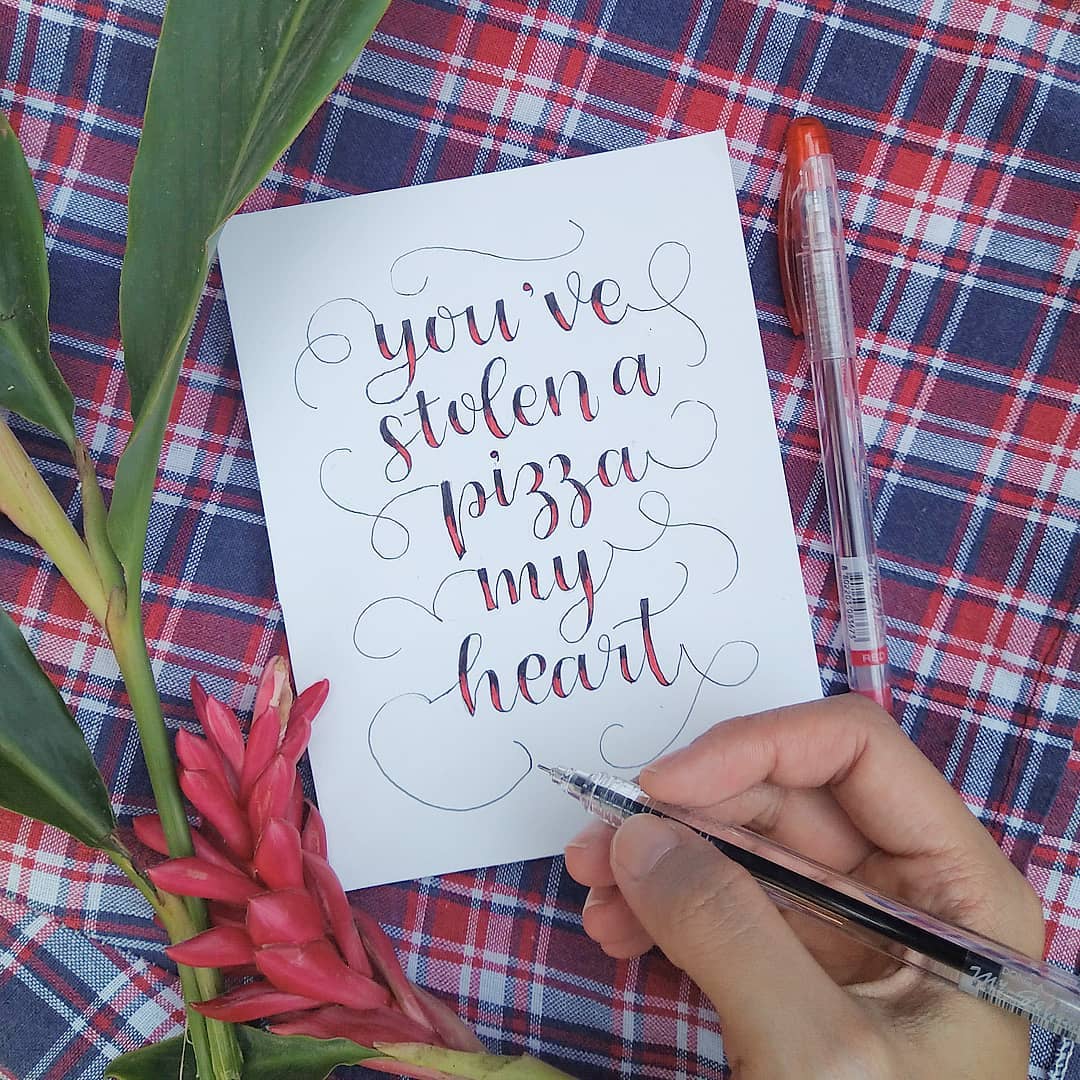 you've
stolen a
pizza
my
heart
RED